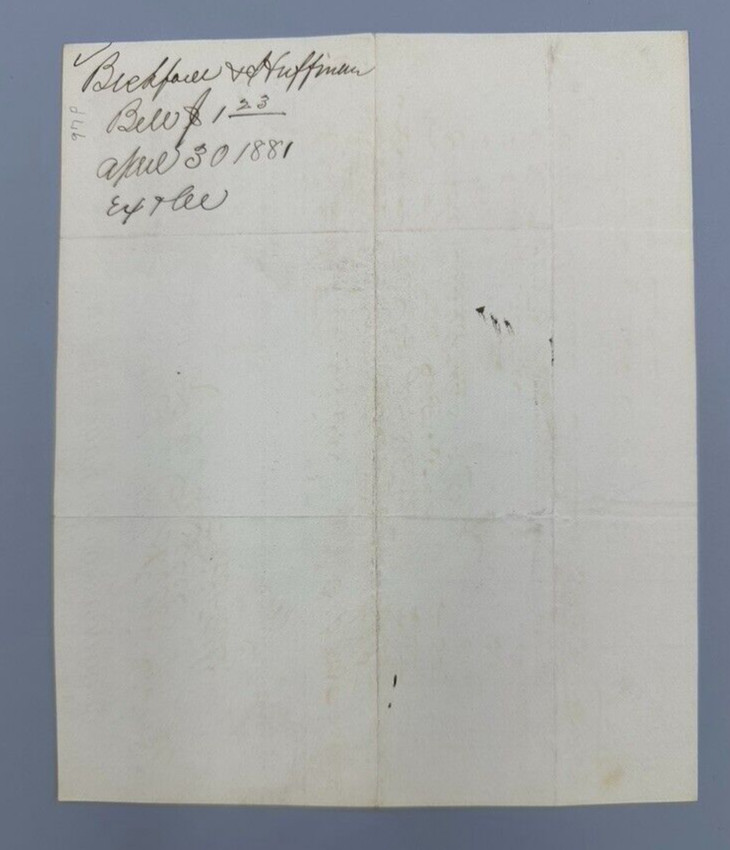 Bickford & Huffman
Bill $ 1 23
April 30 1881